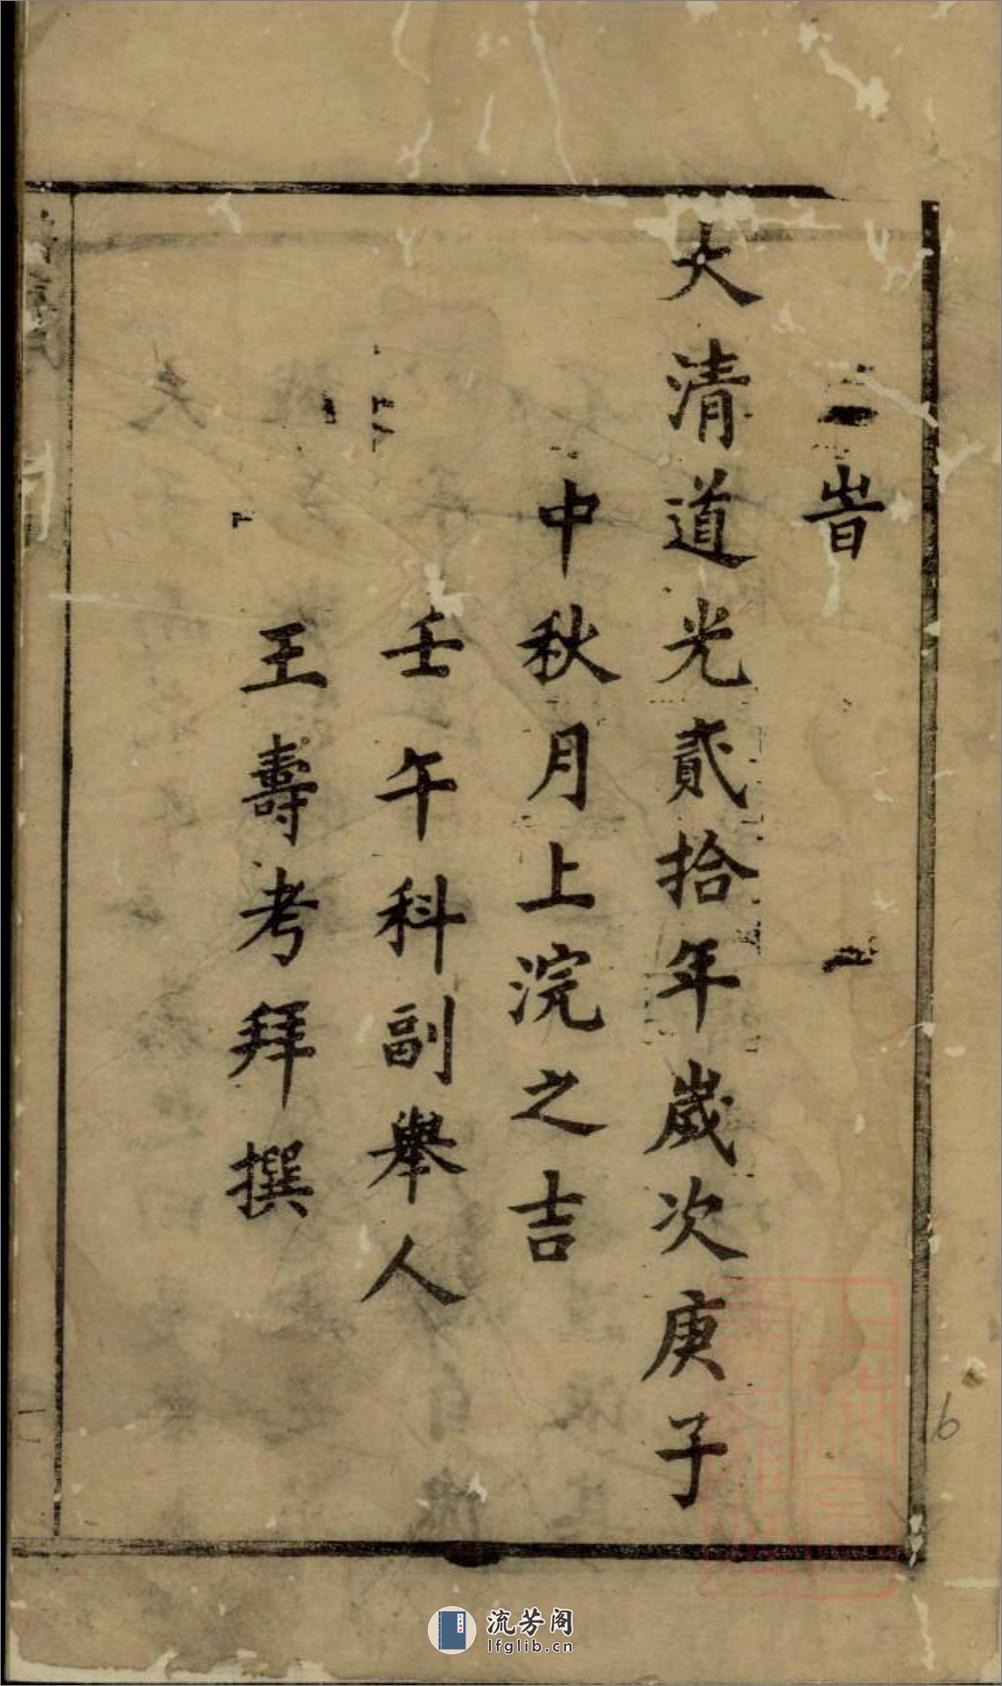 旹
大清道光貳拾年歲次庚子
中秋月上浣之吉
壬午科副舉人
王壽考拜撰
6
流芳阁
lfglib.cn